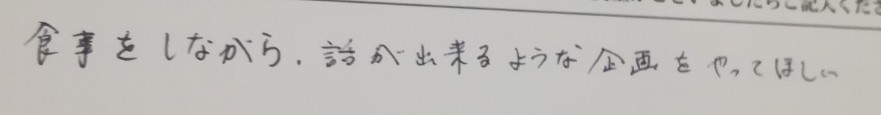 ましたらご記入くださ
食事をしながら、話が出来るような企画をやってほしい